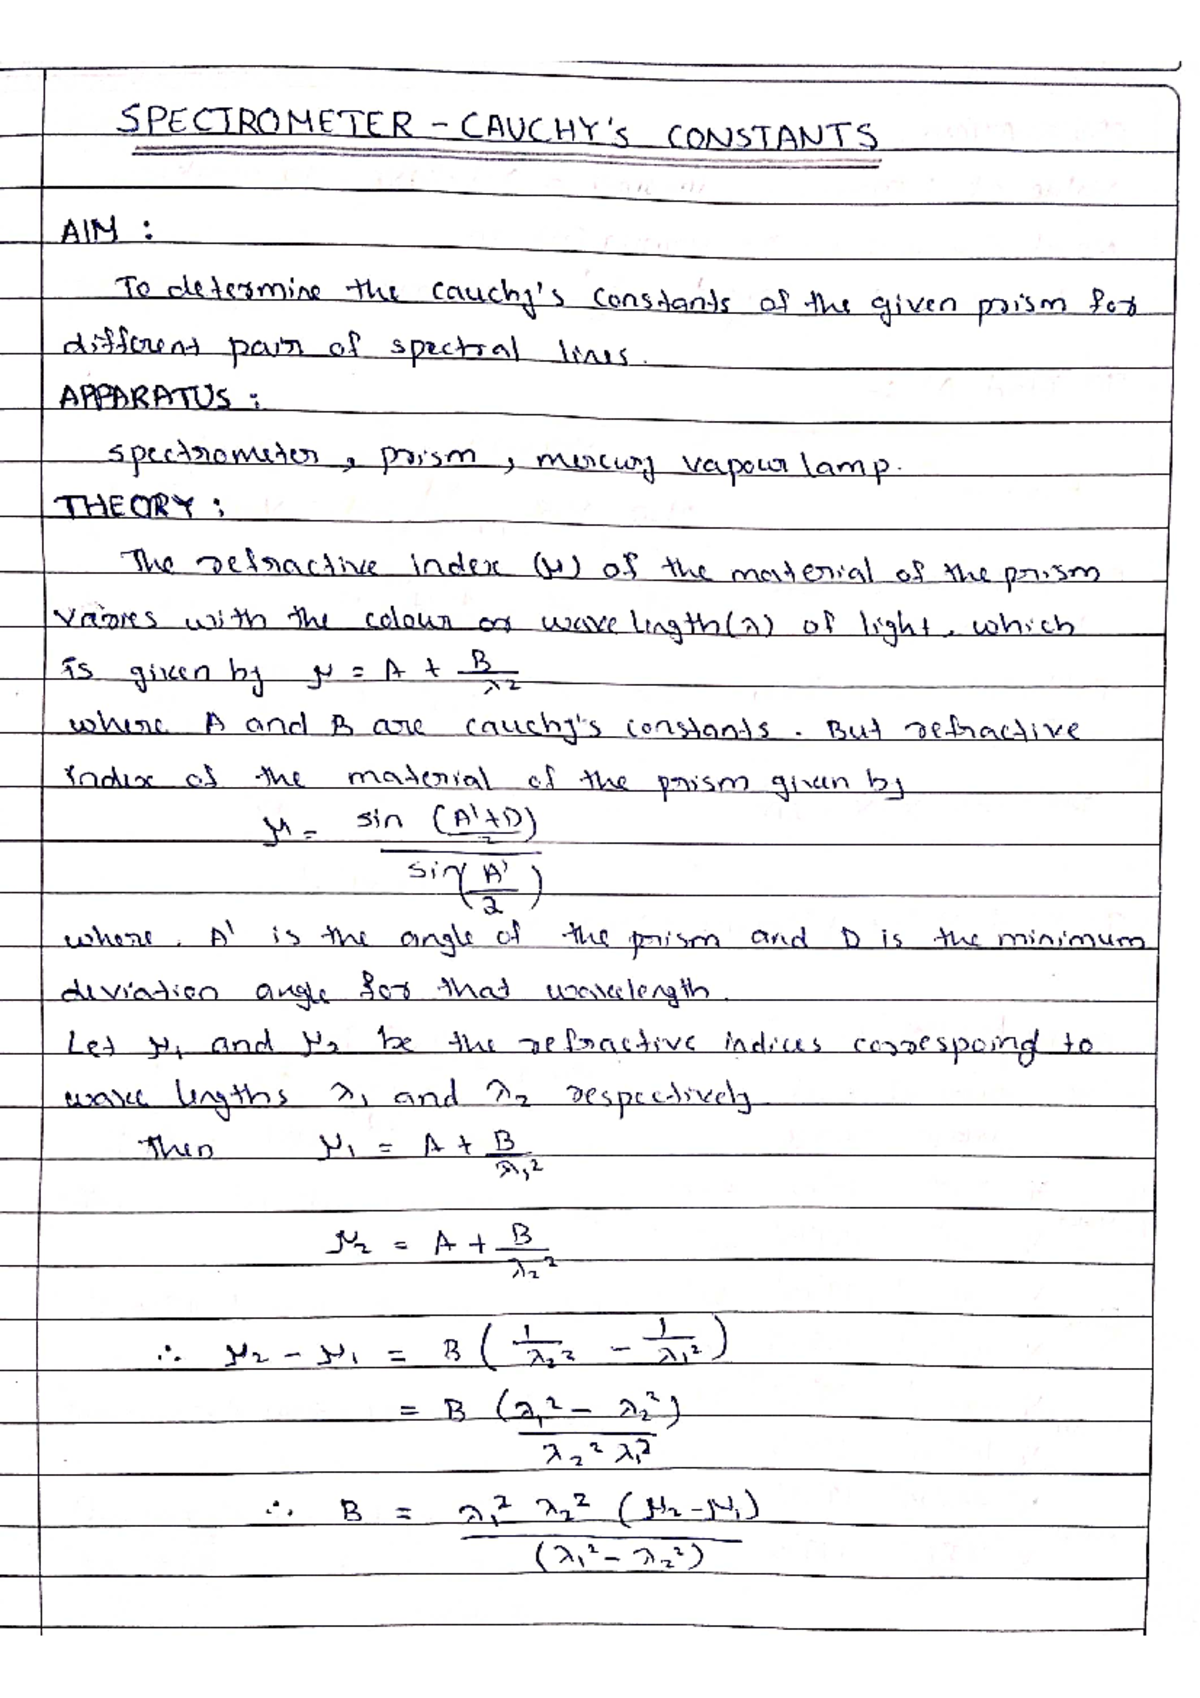 SPECTROMETER - CAUCHY's CONSTANTS
AIM :
To determine the cauchy's constants of the given prism for
different pair of spectral lines.
APPARATUS :
spectrometer, prism, mercury vapour lamp.
THEORY :
The refractive index (μ) of the material of the prism
varies with the colour or wave length (λ) of light, which
is given by μ = A + B/λ²
where A and B are cauchy's constants. But refractive
index of the material of the prism given by
μ = sin (A'+D)/2 / sin(A'/2)
where, A' is the angle of the prism and D is the minimum
deviation angle for that wavelength.
Let μ₁ and μ₂ be the refractive indices correspoing to
wave lengths λ₁ and λ₂ respectively
Then μ₁ = A + B/λ₁²
μ₂ = A + B/λ₂²
∴ μ₂ - μ₁ = B (1/λ₂² - 1/λ₁²)
= B (λ₁² - λ₂²) / λ₂² λ₁²
∴ B = λ₁² λ₂² (μ₂-μ₁) / (λ₁² - λ₂²)